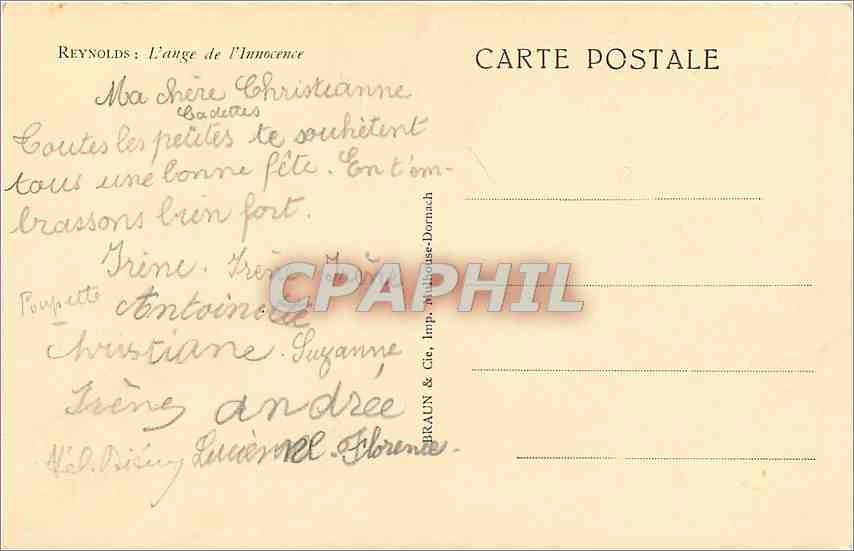 REYNOLDS : L'ange de l'Innocence
CARTE POSTALE
Ma chère Christianne
Cadettes
Toutes les petites te souhètent
tous une bonne fête. En t'em-
brassons bien fort.
Irène. Irène Irène
Poupette Antoinette
Christiane. Suzanne
Irène andrée
Lucienne. Florence.
BRAUN & Cie, Imp. Mulhouse-Dornach
CPAPHIL